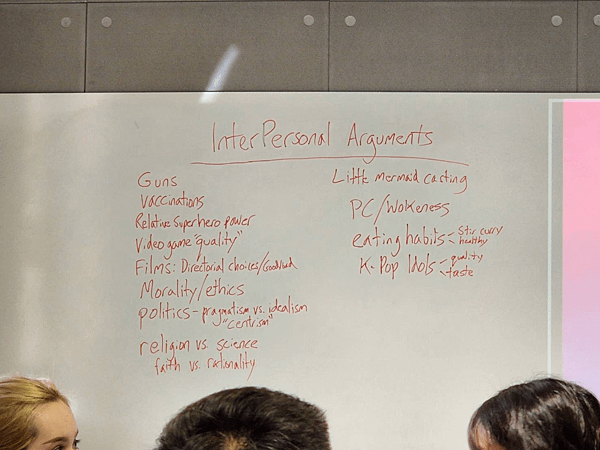 InterPersonal Arguments
Guns
Vaccinations
Relative Superhero power
Video game "quality"
Films: Directorial choices/Good/bad
Morality/ethics
politics - pragmatism vs. idealism
"centrism"
religion vs. science
faith vs. rationality
Little mermaid casting
PC/Wokeness
eating habits - Stir curry
healthy
K-Pop Idols - quality
taste